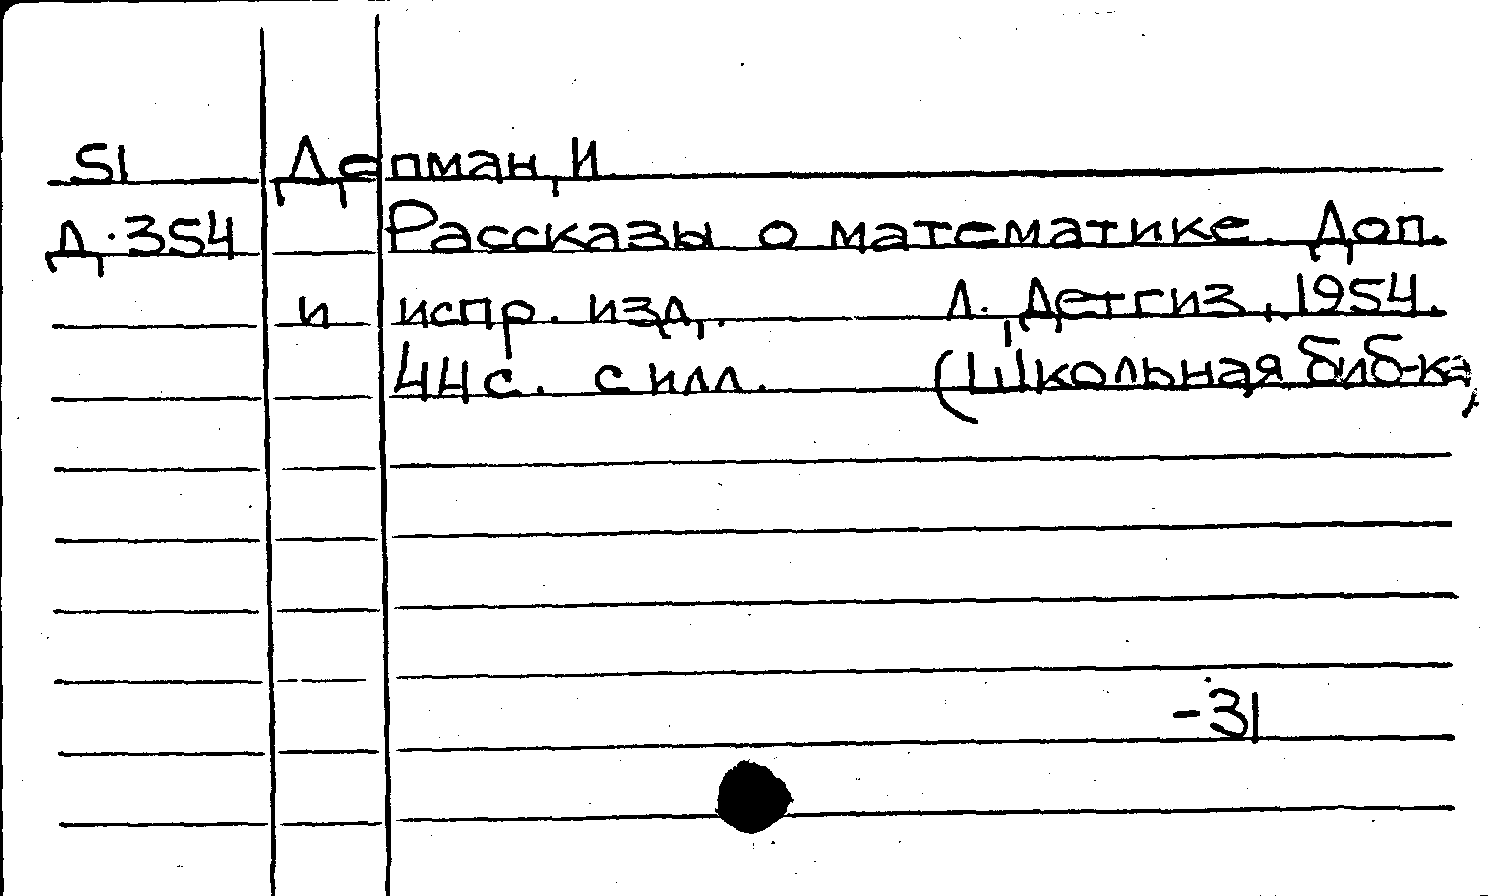 51 Депман, И
Д·354 Рассказы о математике. Доп.
и испр. изд. Л. Детгиз, 1954.
44с. с илл. (Школьная биб-ка)
-31